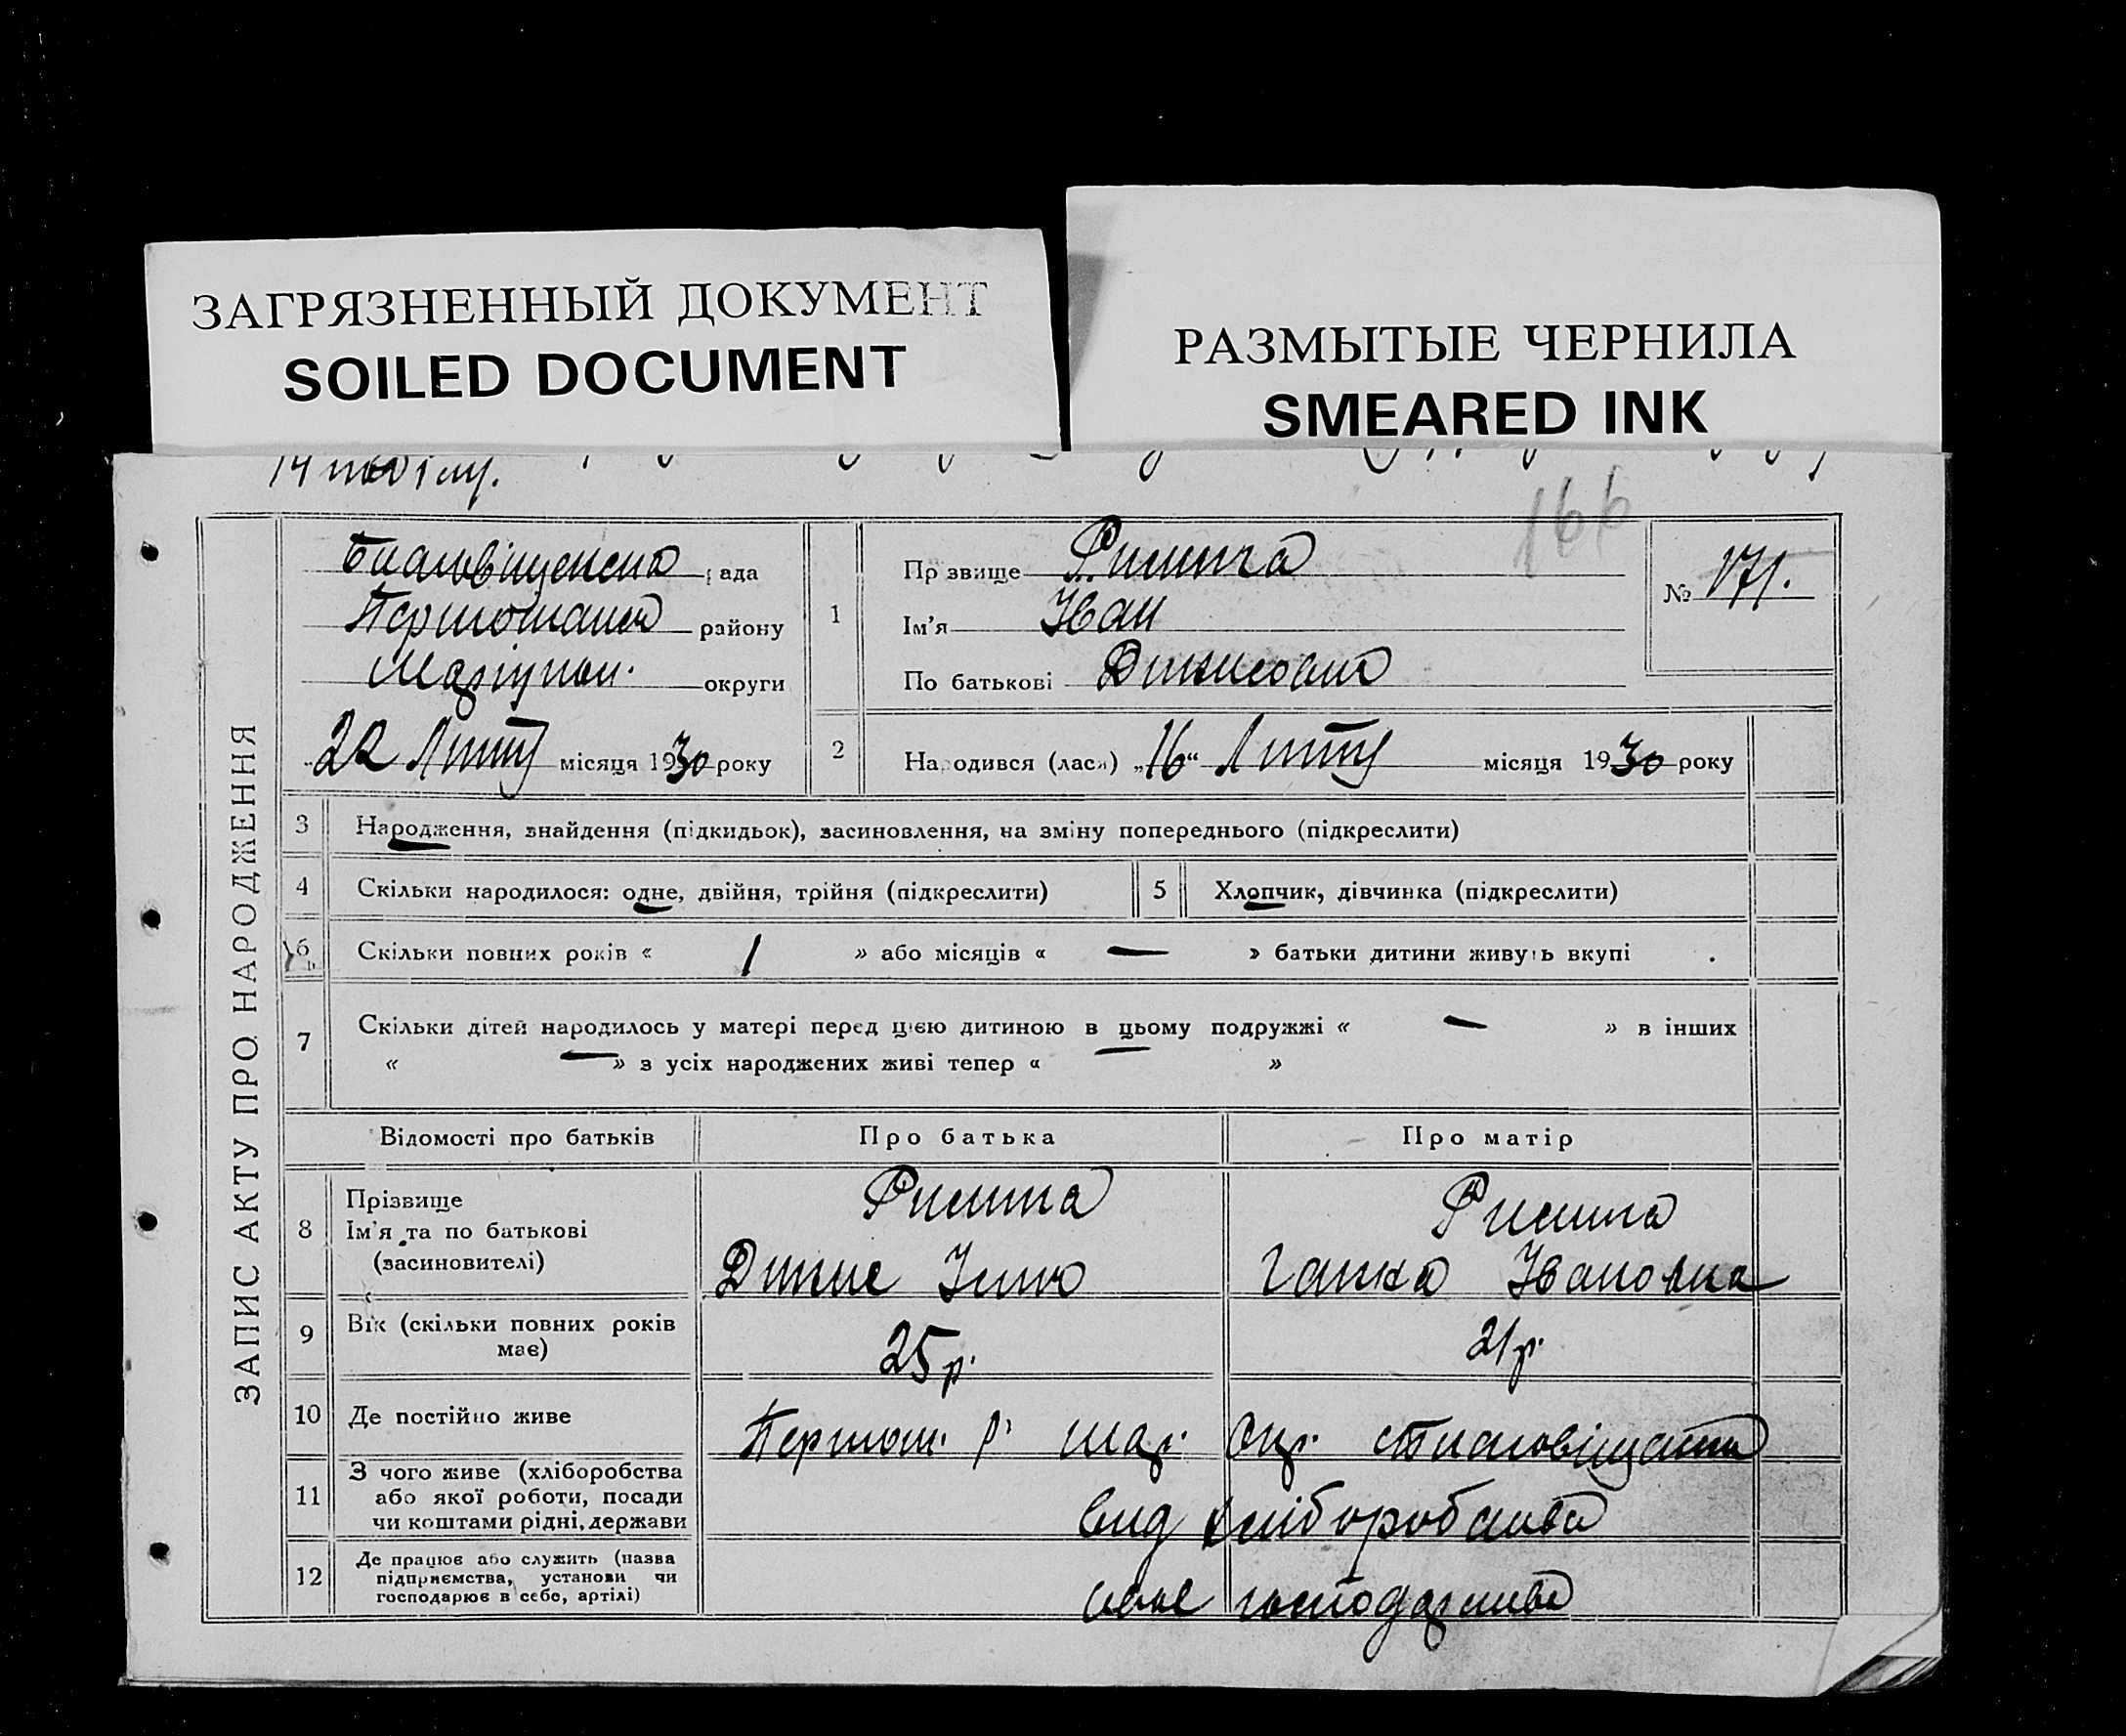 ЗАГРЯЗНЕННЫЙ ДОКУМЕНТ
SOILED DOCUMENT
РАЗМЫТЫЕ ЧЕРНИЛА
SMEARED INK
166
ЗАПИС АКТУ ПРО НАРОДЖЕННЯ
рада
району
округи
22 місяця 1930 року
1
Прізвище
Ім'я Іван
По батькові
№ 171.
2 Народився (лася) „16“ місяця 1930 року
3 Народження, знайдення (підкидьок), засиновлення, на зміну попереднього (підкреслити)
4 Скільки народилося: одне, двійня, трійня (підкреслити) 5 Хлопчик, дівчинка (підкреслити)
6 Скільки повних років « 1 » або місяців « — » батьки дитини живуть вкупі
7 Скільки дітей народилось у матері перед цією дитиною в цьому подружжі « — » в інших
« — » з усіх народжених живі тепер « »
Відомості про батьків Про батька Про матір
8 Прізвище
Ім'я та по батькові Ганна Івановна
(засновителі)
9 Вік (скільки повних років має) 25 р. 21 р.
10 Де постійно живе Першом. р. мар. окр.
11 З чого живе (хліборобства
або якої роботи, посади
чи коштами рідні, держави вид хліборобства
12 Де працює або служить (назва
підприємства, установи чи
господарює в себе, артілі) господарства